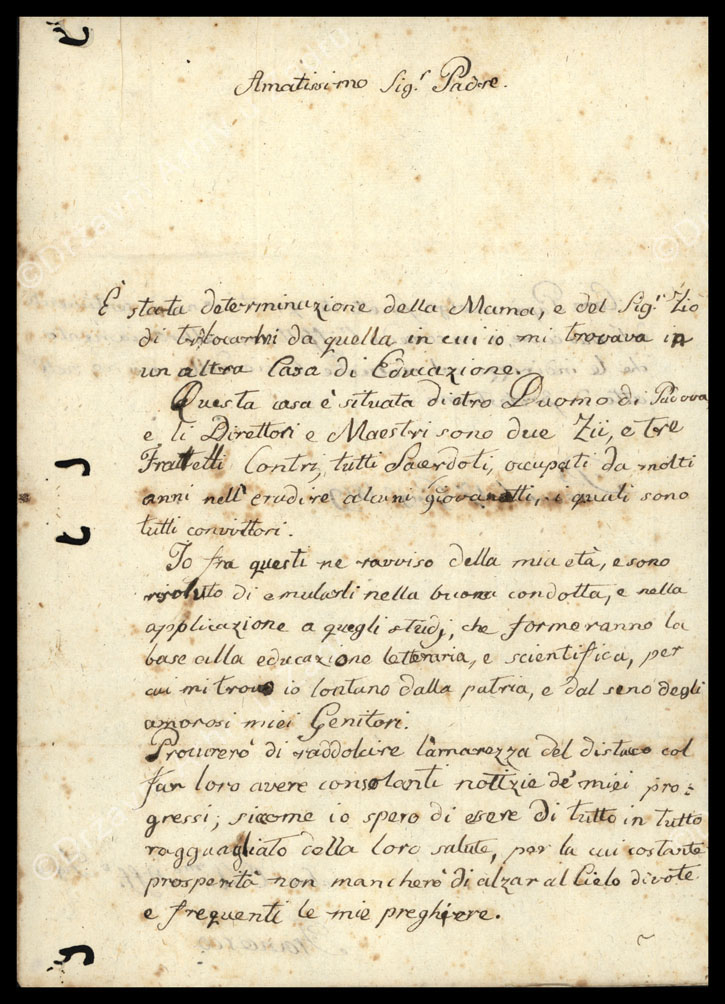 Amatissimo Sig.r Padre.
È stata determinazione della Mama, e del Sig.r Zio
di traslocarmi da quella in cui io mi trovava in
un altra Casa di Educazione.
Questa casa è situata dietro Duomo di Padova,
e li Direttori e Maestri sono due Zii, e tre
Frattelli Contri, tutti Sacerdoti, occupati da molti
anni nell' erudire alcuni giovanotti, i quali sono
tutti convittori.
Io fra questi ne ravviso della mia età, e sono
risoluto di emularli nella buona condotta, e nella
applicazione a quegli studj, che formeranno la
base alla educazione letteraria, e scientifica, per
cui mi trovo io lontano dalla patria, e dal seno degli
amorosi miei Genitori.
Procurerò di raddolcire l'amarezza del distaco col
far loro avere consolanti notizie de' miei pro=
gressi; siccome io spero di essere di tutto in tutto
ragguagliato della loro salute, per la cui costante
prosperità non mancherò di alzar al Cielo divote
e frequenti le mie preghiere.